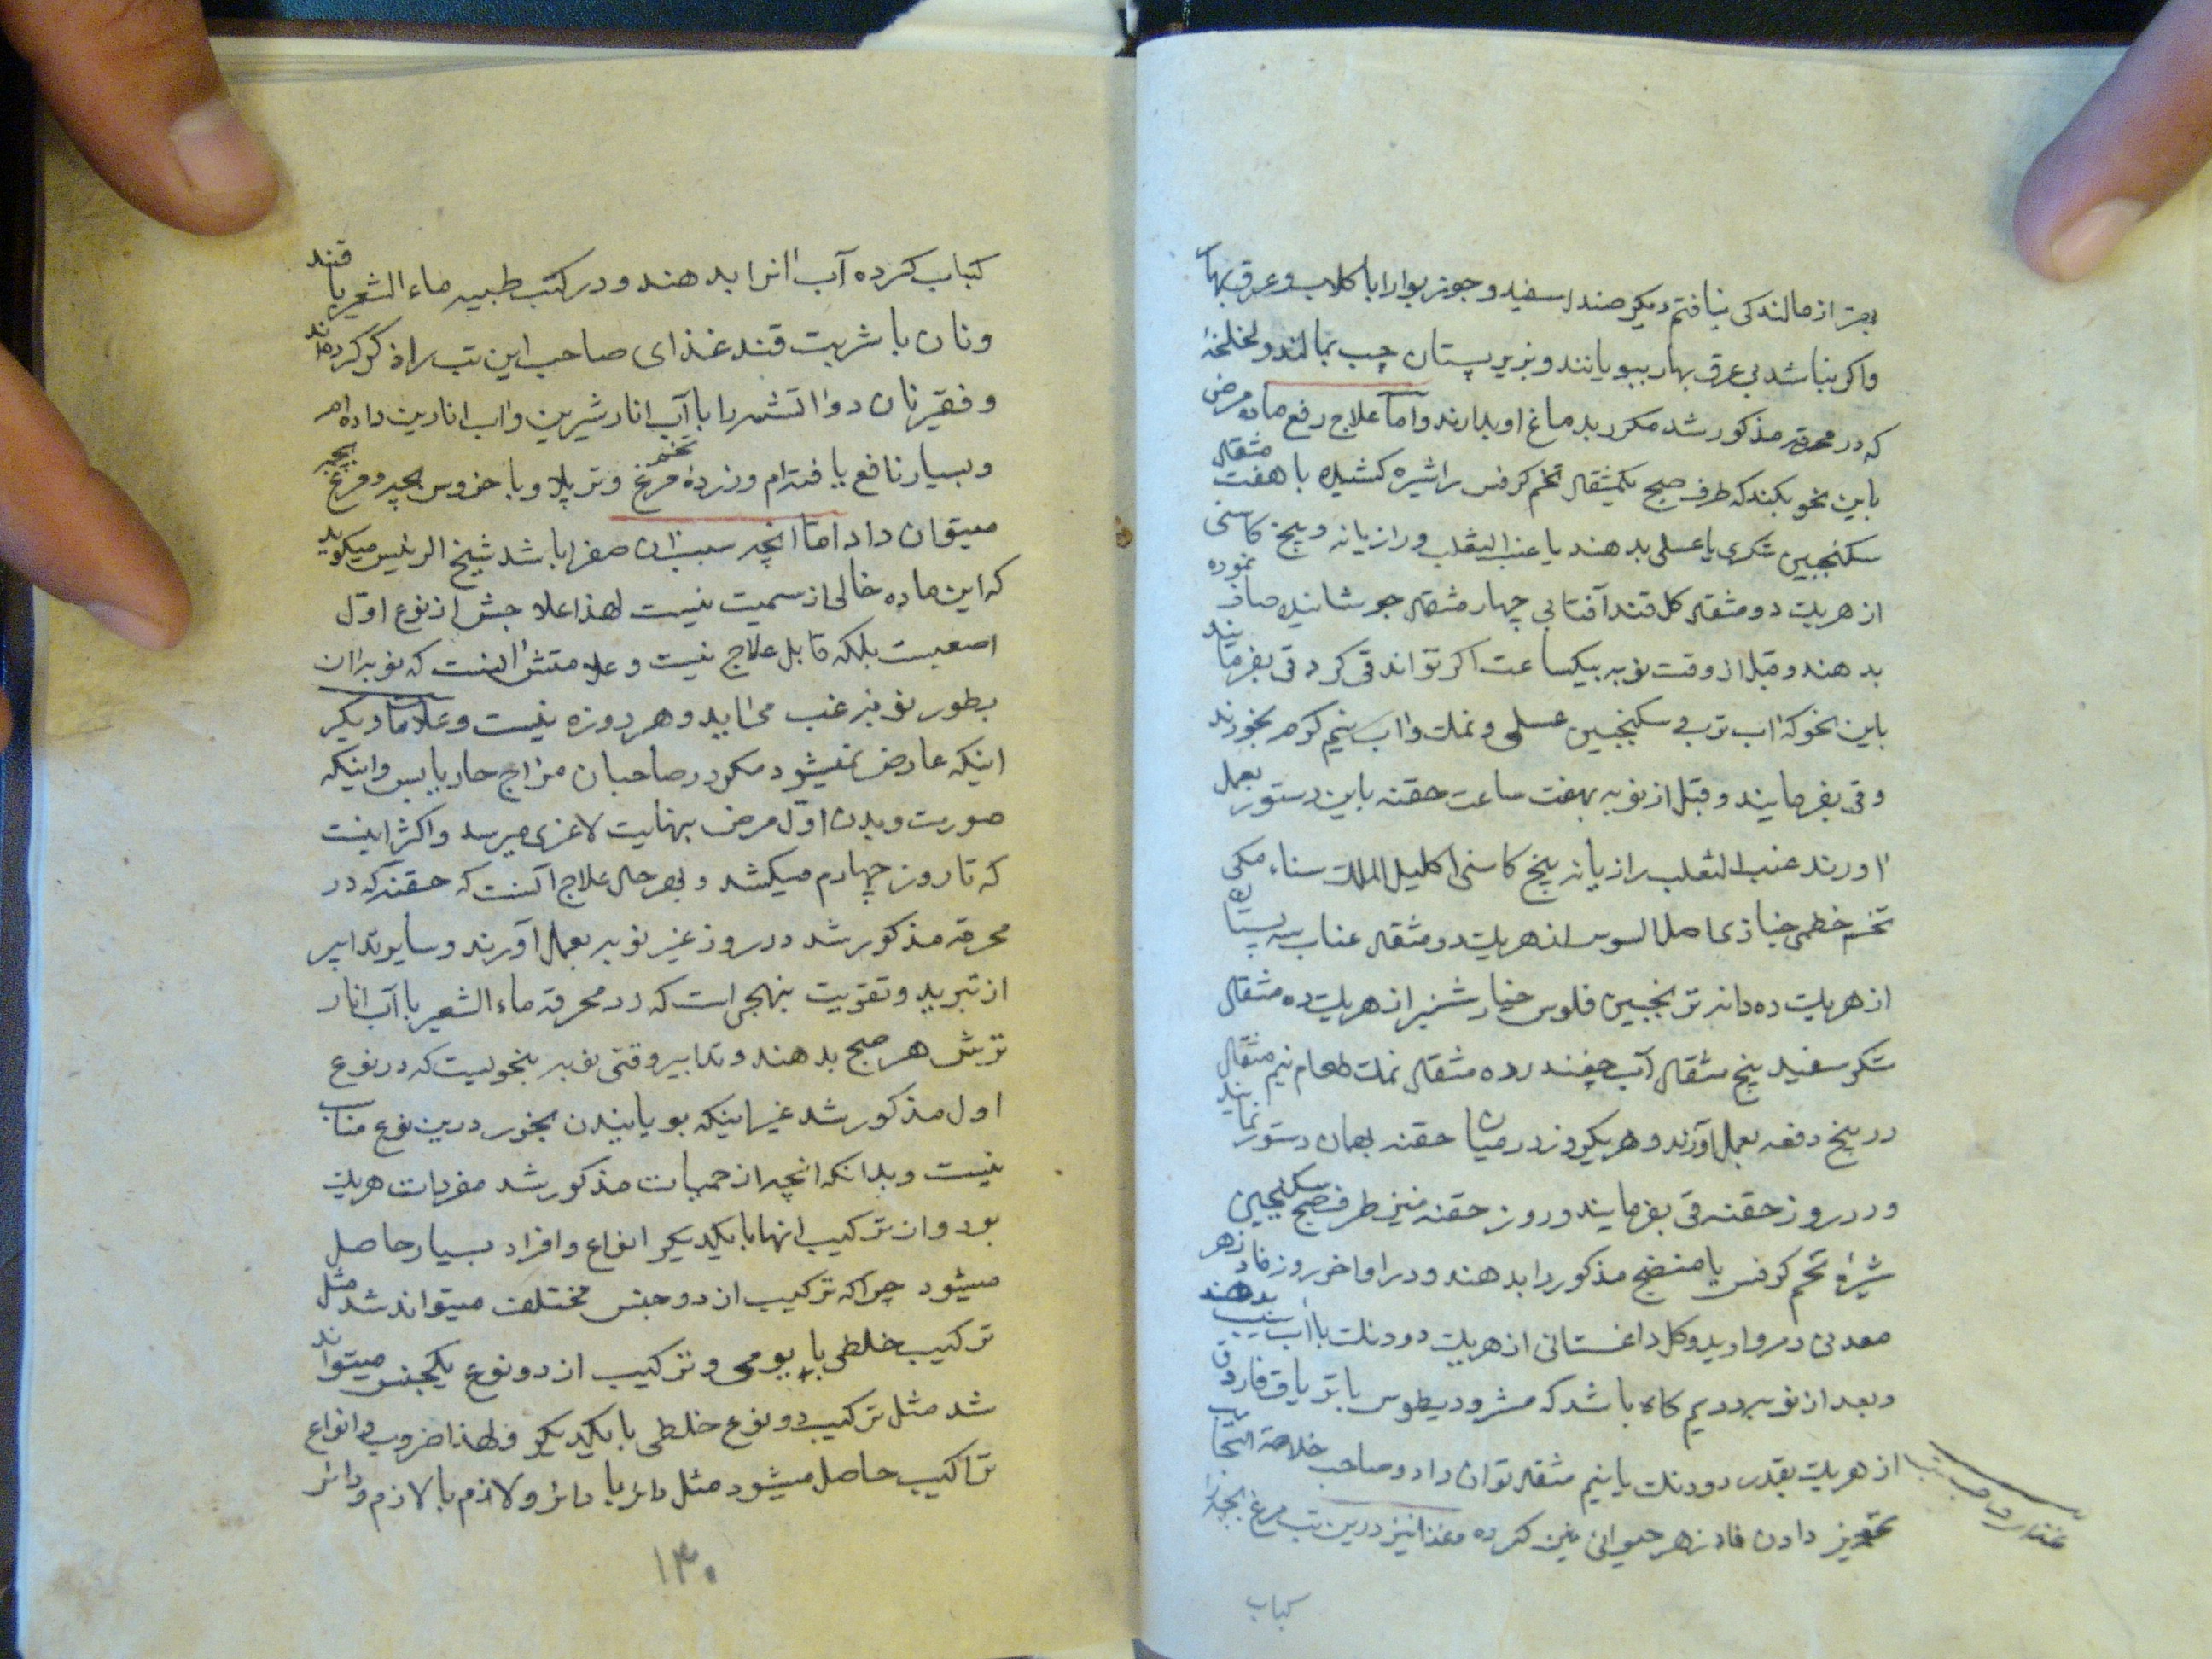 بهتر از مالندکی نیافتم دیکر صندل سفید و جوز بوارا با کلاب و عرق بهار
واکر نباشد بی عرق بهار ببویانند و بزیر پستان چپ بمالند و لخلخهٔ
که در محرقه مذکور شد مکرر بدماغ او بدارند واما علاج رفع ماده مرض
باین نحو بکند که طرف صبح یکمثقال تخم کرفس را شیره کشیده با هفت مثقال
سکنجبین شکری یا عسلی بدهند یا عنب الثعلب و رازیانه و بیخ کاسنی
از هریک دو مثقال کل قند آفتابی چهار مثقال جوشانیده صاف نموده
بدهند و قبل از وقت نوبه بیکساعت اکر تواند قی کرد قی بفرمایند
باین نحو که اب ترب و سکنجبین عسلی و نمک و اب نیم کرم بخورند
وقی بفرمایند و قبل از نوبه بهفت ساعت حقنه باین دستور بعمل
اورند عنب الثعلب رازیانه بیخ کاسنی اکلیل الملک سناء مکی
تخم خطمی خبازی اصل السوس از هریک دو مثقال عناب سپستان
از هریک ده دانه ترنجبین فلوس خیار شنبر از هریک ده مثقال
شکر سفید پنج مثقال آب چغندر ده مثقال نمک طعام نیم مثقال
در پنج دفعه بعمل اورند و هر یکروز در میان حقنه بهمان دستور نمایند
و در روز حقنه قی بفرمایند و روز حقنه نیز طرف صبح سکنجبین
شیرهٔ تخم کرفس یا منضج مذکور را بدهند و در اواخر روز فادزهر
معدنی و مروارید و کل داغستانی از هریک دو دنک با اب سیب بدهند
و بعد از نوبه دویم کاه باشد که مثرودیطوس با تریاق فاروق
از هریک بقدر دو دنک یا نیم مثقال توان داد و صاحب خلاصة التجارب
تجویز دادن فادزهر حیوانی نیز کرده و غذا نیز درین تب مرغ بچه را
کباب
کباب کرده آب انرا بدهند و در کتب طبیه ماء الشعیر با قند
و نان با شربت قند غذای صاحب این تب را ذکر کرده‌اند
و فقیر نان دو اتشه را با آب انار شیرین و اب انارین داده ام
و بسیار نافع یافته‌ام و زردهٔ تخم مرغ و تر پلاو با خروس بچه و مرغ بچه
میتوان داد اما انچه سبب ان صفرا باشد شیخ الرئیس میکوید
که این ماده خالی از سمیت نیست لهذا علاجش از نوع اوّل
اصعبست بلکه قابل علاج نیست و علامتش انست که نوبه ان
بطور نوبهٔ غب می‌اید و هر روزه نیست و علامات دیکر
اینکه عارض نمیشود مکر در صاحبان مزاج حار یابس و اینکه
صورت و بدن اول مرض بنهایت لاغری میرسد و اکثر اینست
که تا روز چهارم میکشد و بهر حال علاج آنست که حقنه که در
محرقه مذکور شد در روز غیر نوبه بعمل آورند و سایر تدابیر
از تبرید و تقویت بنهجی است که در محرقه ماء الشعیر با آب انار
ترش هر صبح بدهند و تدابیر وقتی نوبه بنحویست که در نوع
اول مذکور شد غیر اینکه بویانیدن بخور درین نوع مناسب
نیست و بدانکه انچه از حمیات مذکور شد مفردات هریک
بود و از ترکیب انها با یکدیکر انواع و افراد بسیار حاصل
میشود چراکه ترکیب از دو جنس مختلف میتواند شد مثل
ترکیب خلطی با یومی و ترکیب از دو نوع یکجنس میتواند
شد مثل ترکیب دو نوع خلطی با یکدیکر و لهذا ضروب و انواع
تراکیب حاصل میشود مثل دائر با دائر و لازم با لازم و دائر
۱۳۰